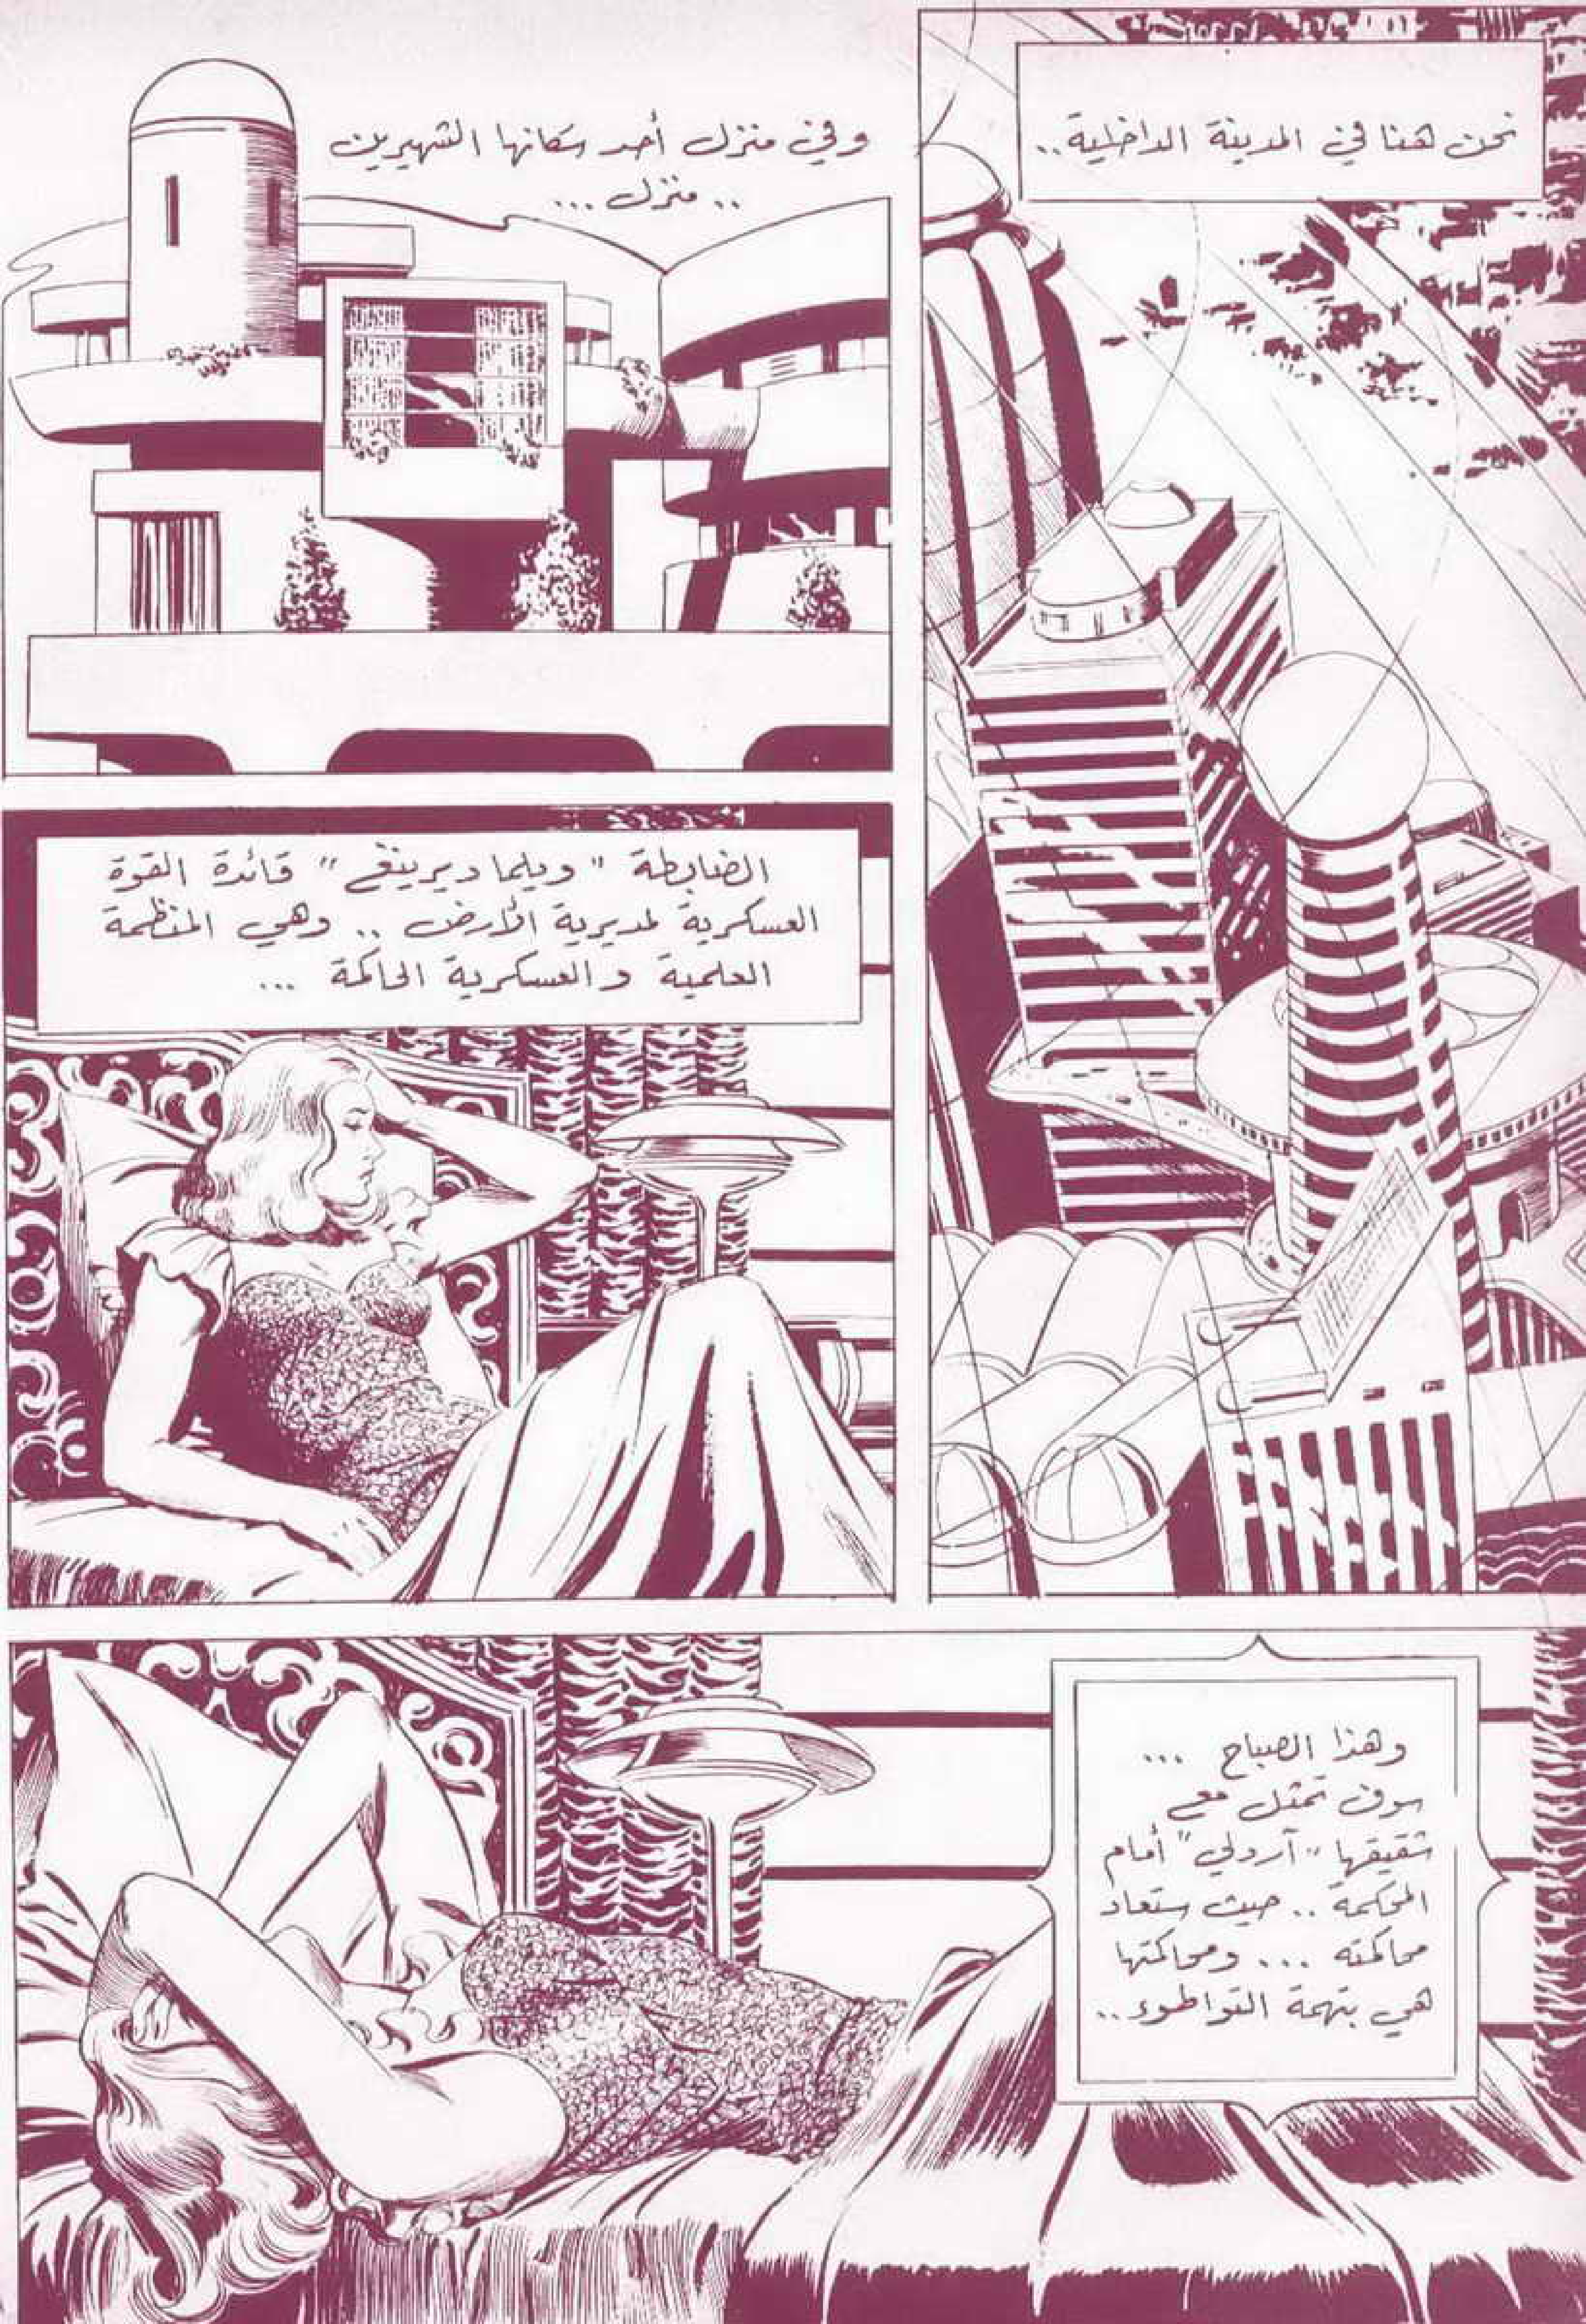 نحن هنا في المدينة الداخلية..
وفي منزل أحد سكانها الشهيرين
.. منزل ...
الضابطة "ويلما ديرينغ" قائدة القوة
العسكرية لمديرية الأرض .. وهي المنظمة
العلمية والعسكرية الحاكمة ...
وهذا الصباح ...
سوف تمثل مع
شقيقها "آردلي" أمام
المحكمة .. حيث ستعاد
محاكمته ... ومحاكمتها
هي بتهمة التواطوء..